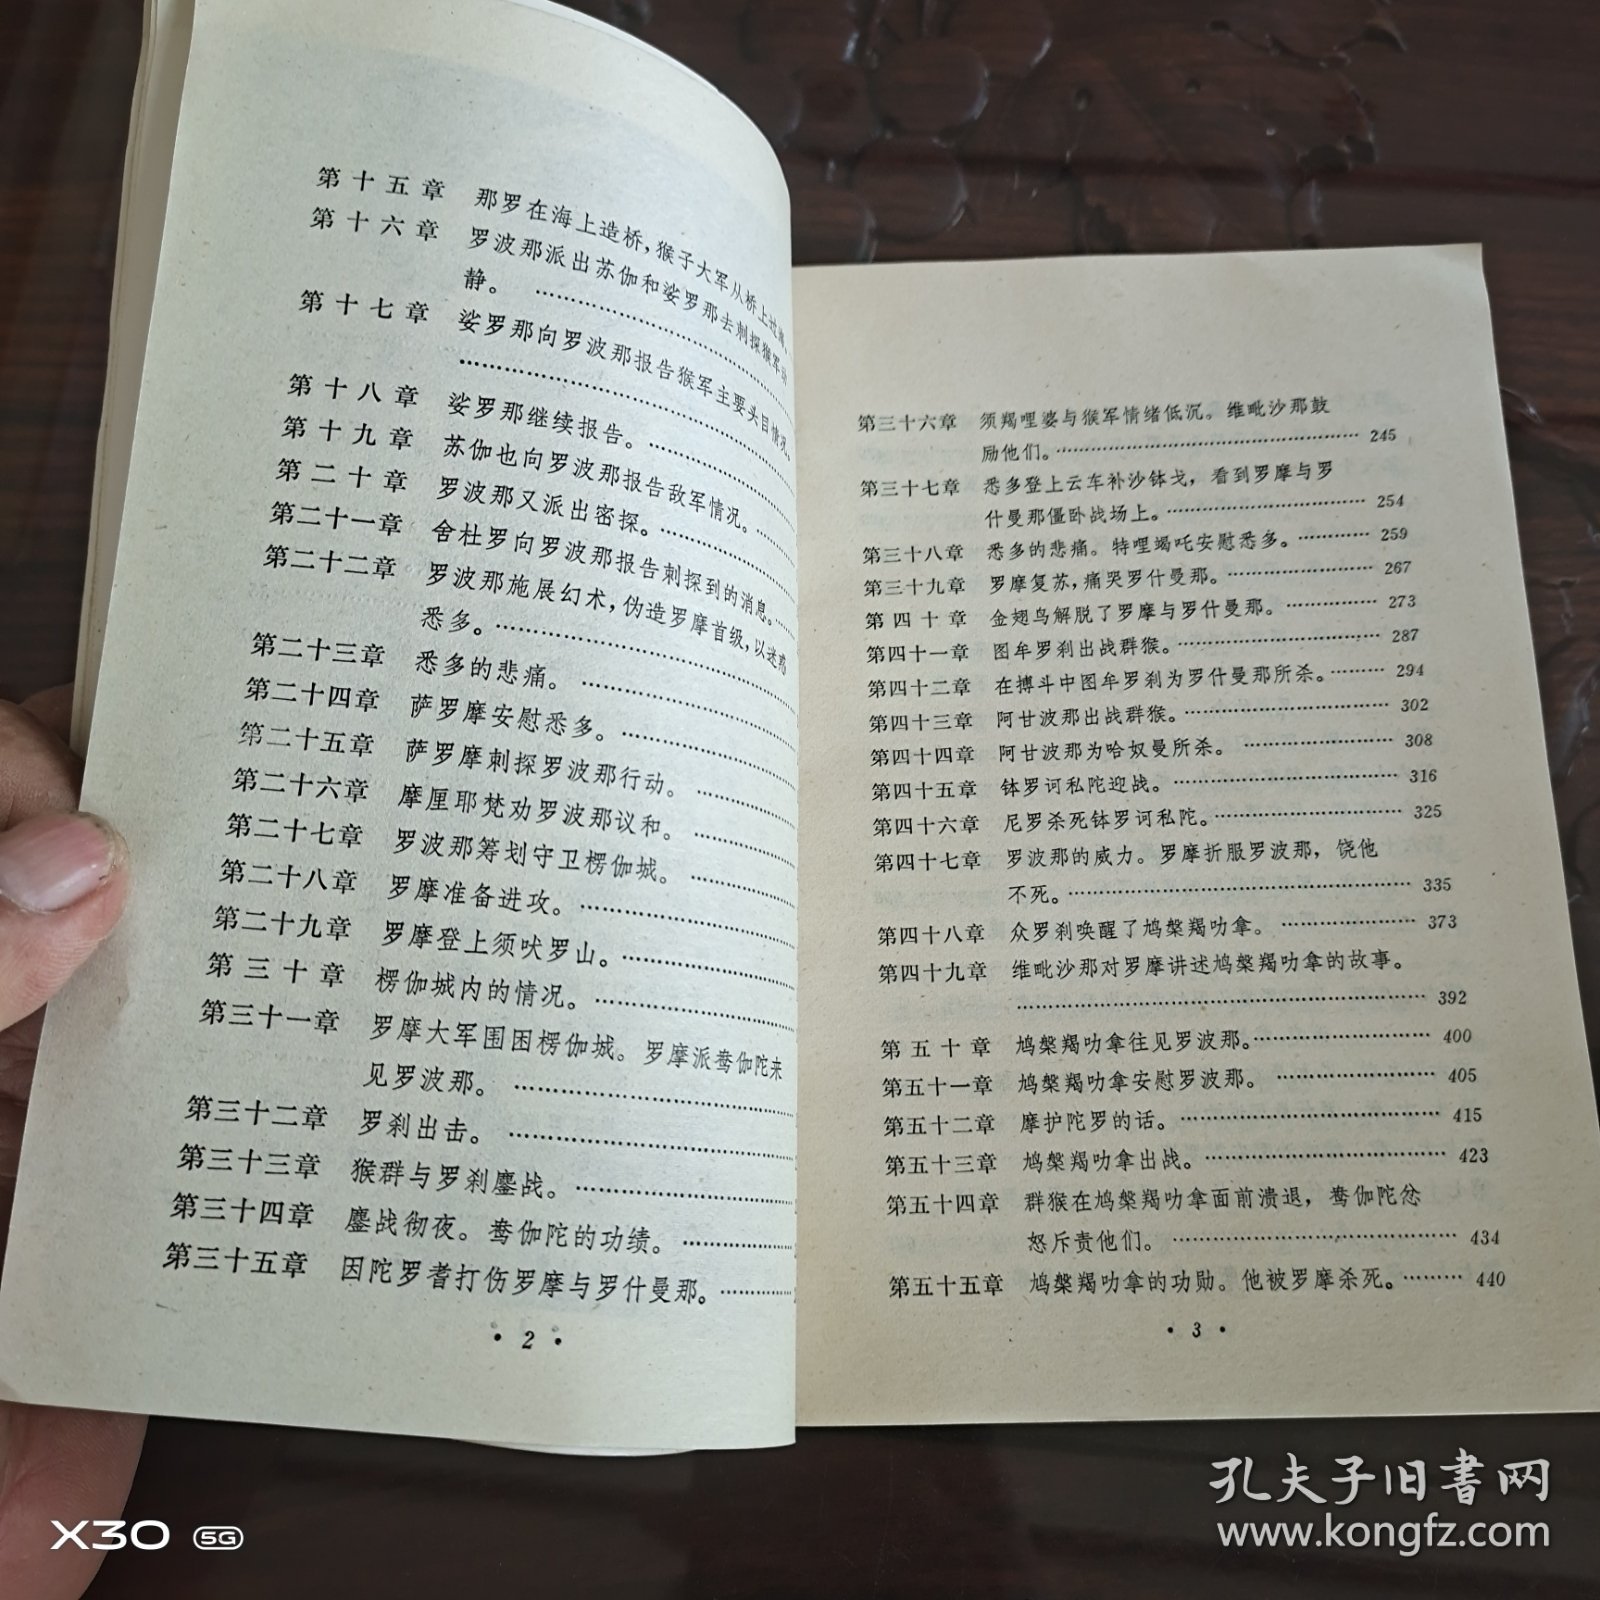 第十五章 那罗在海上造桥，猴子大军从桥上过海。
第十六章 罗波那派出苏伽和娑罗那去刺探猴军动
静。 ……………………
第十七章 娑罗那向罗波那报告猴军主要头目情况。
……………………
第十八章 娑罗那继续报告。……………
第十九章 苏伽也向罗波那报告敌军情况。………
第二十章 罗波那又派出密探。……………
第二十一章 舍杜罗向罗波那报告刺探到的消息。……
第二十二章 罗波那施展幻术，伪造罗摩首级，以迷惑
悉多。……………………
第二十三章 悉多的悲痛。……………………
第二十四章 萨罗摩安慰悉多。……………
第二十五章 萨罗摩刺探罗波那行动。…………
第二十六章 摩厘耶梵劝罗波那议和。…………
第二十七章 罗波那筹划守卫楞伽城。…………
第二十八章 罗摩准备进攻。……………………
第二十九章 罗摩登上须吠罗山。………………
第三十章 楞伽城内的情况。………………
第三十一章 罗摩大军围困楞伽城。罗摩派鸯伽陀来
见罗波那。……………………
第三十二章 罗刹出击。……………………
第三十三章 猴群与罗刹鏖战。………………
第三十四章 鏖战彻夜。鸯伽陀的功绩。…………
第三十五章 因陀罗耆打伤罗摩与罗什曼那。………
• 2 •
第三十六章 须羯哩婆与猴军情绪低沉。维毗沙那鼓
励他们。…………………… 245
第三十七章 悉多登上云车补沙钵戈，看到罗摩与罗
什曼那僵卧战场上。…………… 254
第三十八章 悉多的悲痛。特哩竭吒安慰悉多。………… 259
第三十九章 罗摩复苏，痛哭罗什曼那。……………… 267
第四十章 金翅鸟解脱了罗摩与罗什曼那。………… 273
第四十一章 图牟罗刹出战群猴。…………………… 287
第四十二章 在搏斗中图牟罗刹为罗什曼那所杀。……… 294
第四十三章 阿甘波那出战群猴。…………………… 302
第四十四章 阿甘波那为哈奴曼所杀。……………… 308
第四十五章 钵罗诃私陀迎战。…………………… 316
第四十六章 尼罗杀死钵罗诃私陀。………………… 325
第四十七章 罗波那的威力。罗摩折服罗波那，饶他
不死。…………………… 335
第四十八章 众罗刹唤醒了鸠槃羯叻拿。…………… 373
第四十九章 维毗沙那对罗摩讲述鸠槃羯叻拿的故事。
…………………… 392
第五十章 鸠槃羯叻拿往见罗波那。……………… 400
第五十一章 鸠槃羯叻拿安慰罗波那。……………… 405
第五十二章 摩护陀罗的话。…………………… 415
第五十三章 鸠槃羯叻拿出战。…………………… 423
第五十四章 群猴在鸠槃羯叻拿面前溃退，鸯伽陀忿
怒斥责他们。…………………… 434
第五十五章 鸠槃羯叻拿的功勋。他被罗摩杀死。……… 440
• 3 •
X30 5G
孔夫子旧书网
www.kongfz.com